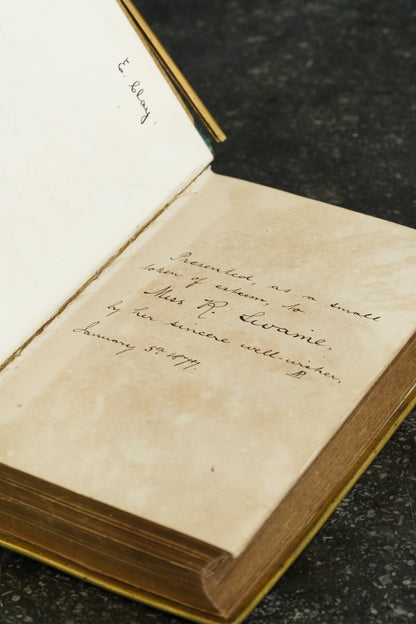 E. Clay.
Presented, as a small
token of esteem, to
Miss R. Swaine,
by her sincere well-wisher,
January 5th 1877.